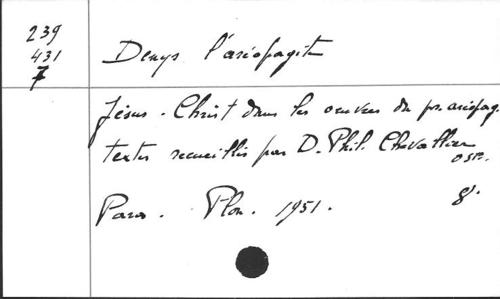 239
431
7
Denys l'aréopagite
Jésus-Christ dans les oeuvres du ps. aréopag.
textes recueillis par D. Phil. Chevallier
OSB.
Paris. Plon. 1951. 8°.